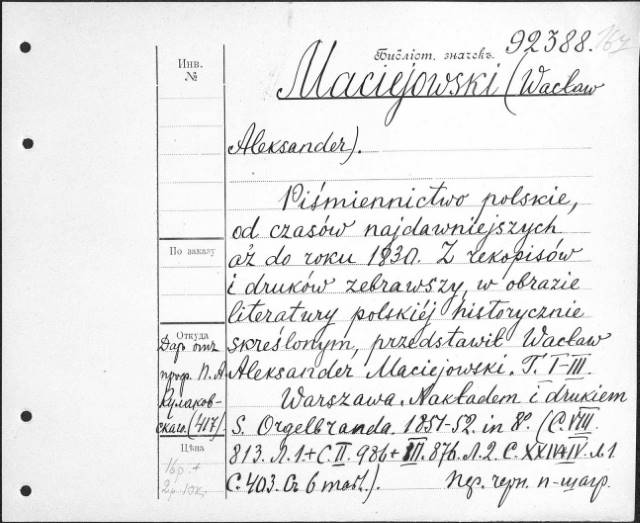 Библіот. значекъ. 92388. 16y
Инв.
№
Maciejowski (Wacław
Aleksander).
Piśmiennictwo polskie,
od czasów najdawniejszych
aż do roku 1830. Z rekopisów
i druków zebrawszy, w obrazie
literatury polskiéj historycznie
skreślonym, przedstawił Wacław
Aleksander Maciejowski. T. I-III.
Warszawa. Nakładem i drukiem
S. Orgelbranda. 1851-52. in 8º. (С. VIII.
813. Л. 1. + С. II. 986 + III. 876. Л. 2. С. XXIV+IV. Л. 1
С. 403. Съ 6 табл.). Пер. черн. п-шагр.
По заказу
Откуда
Даръ отъ
проф. П. А.
Кулаков-
скаго. (417)
Цѣна
16р. +
2р. 10к.